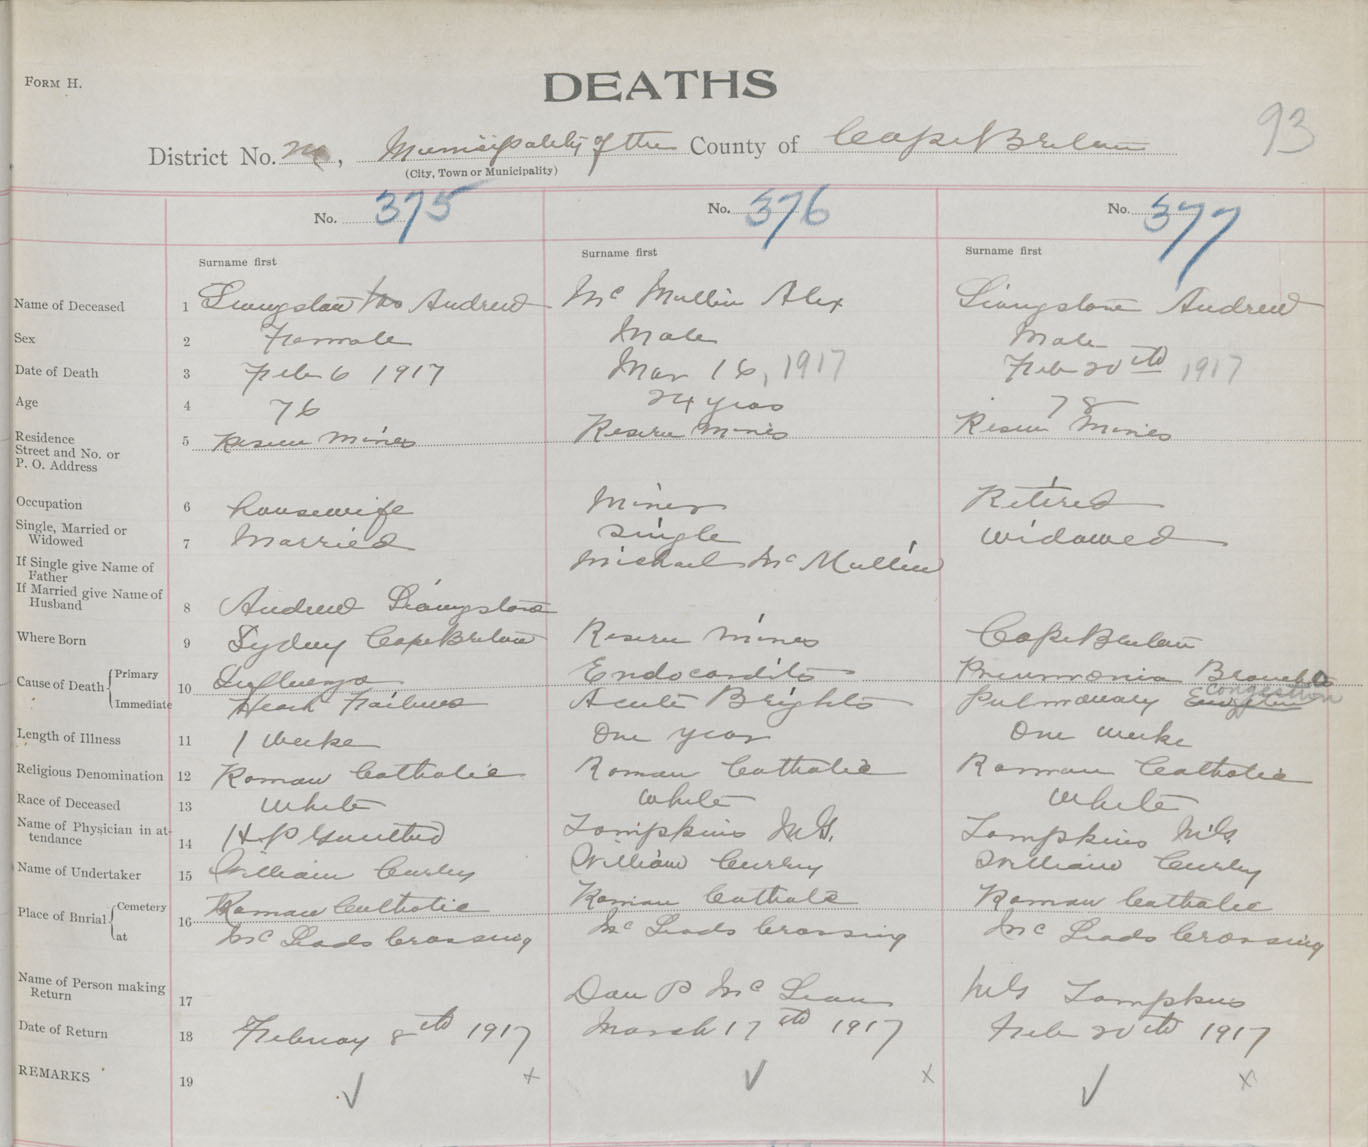 FORM H.
DEATHS
93
District No. , Municipality of the County of Cape Breton
(City, Town or Municipality)
No. 375 No. 376 No. 377
Surname first Surname first Surname first
Name of Deceased 1 Livingston Mrs Andrew Mc Mullin Alex Livingstone Andrew
Sex 2 Female Male Male
Date of Death 3 Feb 6 1917 Mar 16, 1917 Feb 20th 1917
Age 4 76 24 years 78
Residence
Street and No. or
P. O. Address
5 Reserve Mines Reserve Mines Reserve Mines
Occupation 6 housewife Miner Retired
Single, Married or
Widowed
7 Married Single Widowed
If Single give Name of
Father
Michael Mc Mullin
If Married give Name of
Husband
8 Andrew Livingstone
Where Born 9 Sydney Cape Breton Reserve Mines Cape Breton
Cause of Death Primary 10 Influenza Endocarditis Pneumonia Broncho
Immediate Heart Failure Acute Brights Pulmonary congestion
Length of Illness 11 1 Weeke One year One weeke
Religious Denomination 12 Roman Catholic Roman Catholic Roman Catholic
Race of Deceased 13 White White White
Name of Physician in at-
tendance
14 H P Tompkins M G. Tompkins M G.
Name of Undertaker 15 William Curley William Curley William Curley
Place of Burial Cemetery 16 Roman Catholic Roman Catholic Roman Catholic
at Mc Leods Crossing Mc Leods Crossing Mc Leods Crossing
Name of Person making
Return
17 Dan P Mc Lean MG Tompkins
Date of Return 18 Februay 8th 1917 March 17th 1917 Feb 20th 1917
REMARKS 19 ✓ x ✓ x ✓ x